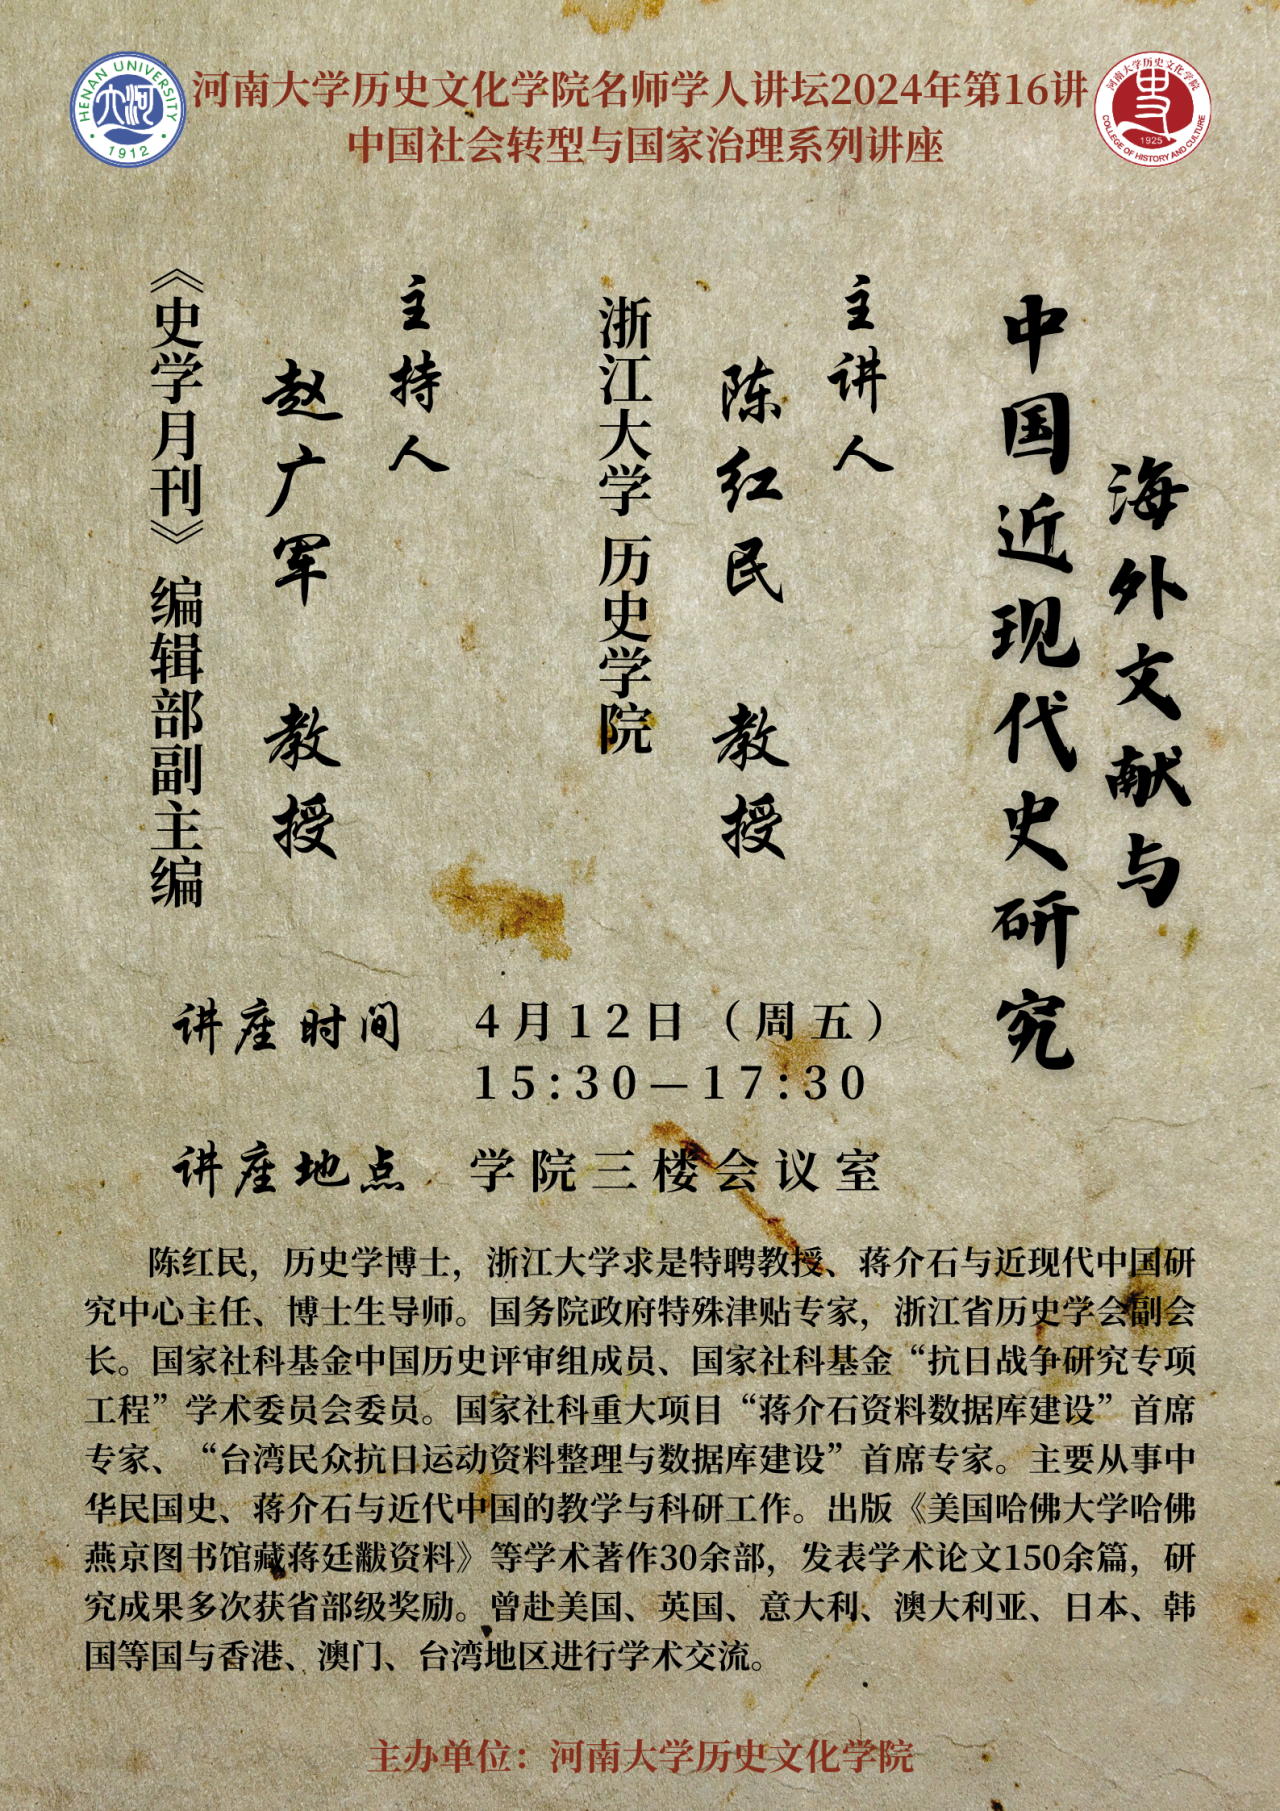 河南大学历史文化学院名师学人讲坛2024年第16讲
中国社会转型与国家治理系列讲座
HENAN UNIVERSITY
1912
河南大学历史文化学院
1925
COLLEGE OF HISTORY AND CULTURE
海外文献与
中国近现代史研究
主讲人
陈红民 教授
浙江大学 历史学院
主持人
赵广军 教授
《史学月刊》编辑部副主编
讲座时间 4月12日（周五）
15:30—17:30
讲座地点 学院三楼会议室
陈红民，历史学博士，浙江大学求是特聘教授、蒋介石与近现代中国研
究中心主任、博士生导师。国务院政府特殊津贴专家，浙江省历史学会副会
长。国家社科基金中国历史评审组成员、国家社科基金“抗日战争研究专项
工程”学术委员会委员。国家社科重大项目“蒋介石资料数据库建设”首席
专家、“台湾民众抗日运动资料整理与数据库建设”首席专家。主要从事中
华民国史、蒋介石与近代中国的教学与科研工作。出版《美国哈佛大学哈佛
燕京图书馆藏蒋廷黻资料》等学术著作30余部，发表学术论文150余篇，研
究成果多次获省部级奖励。曾赴美国、英国、意大利、澳大利亚、日本、韩
国等国与香港、澳门、台湾地区进行学术交流。
主办单位：河南大学历史文化学院